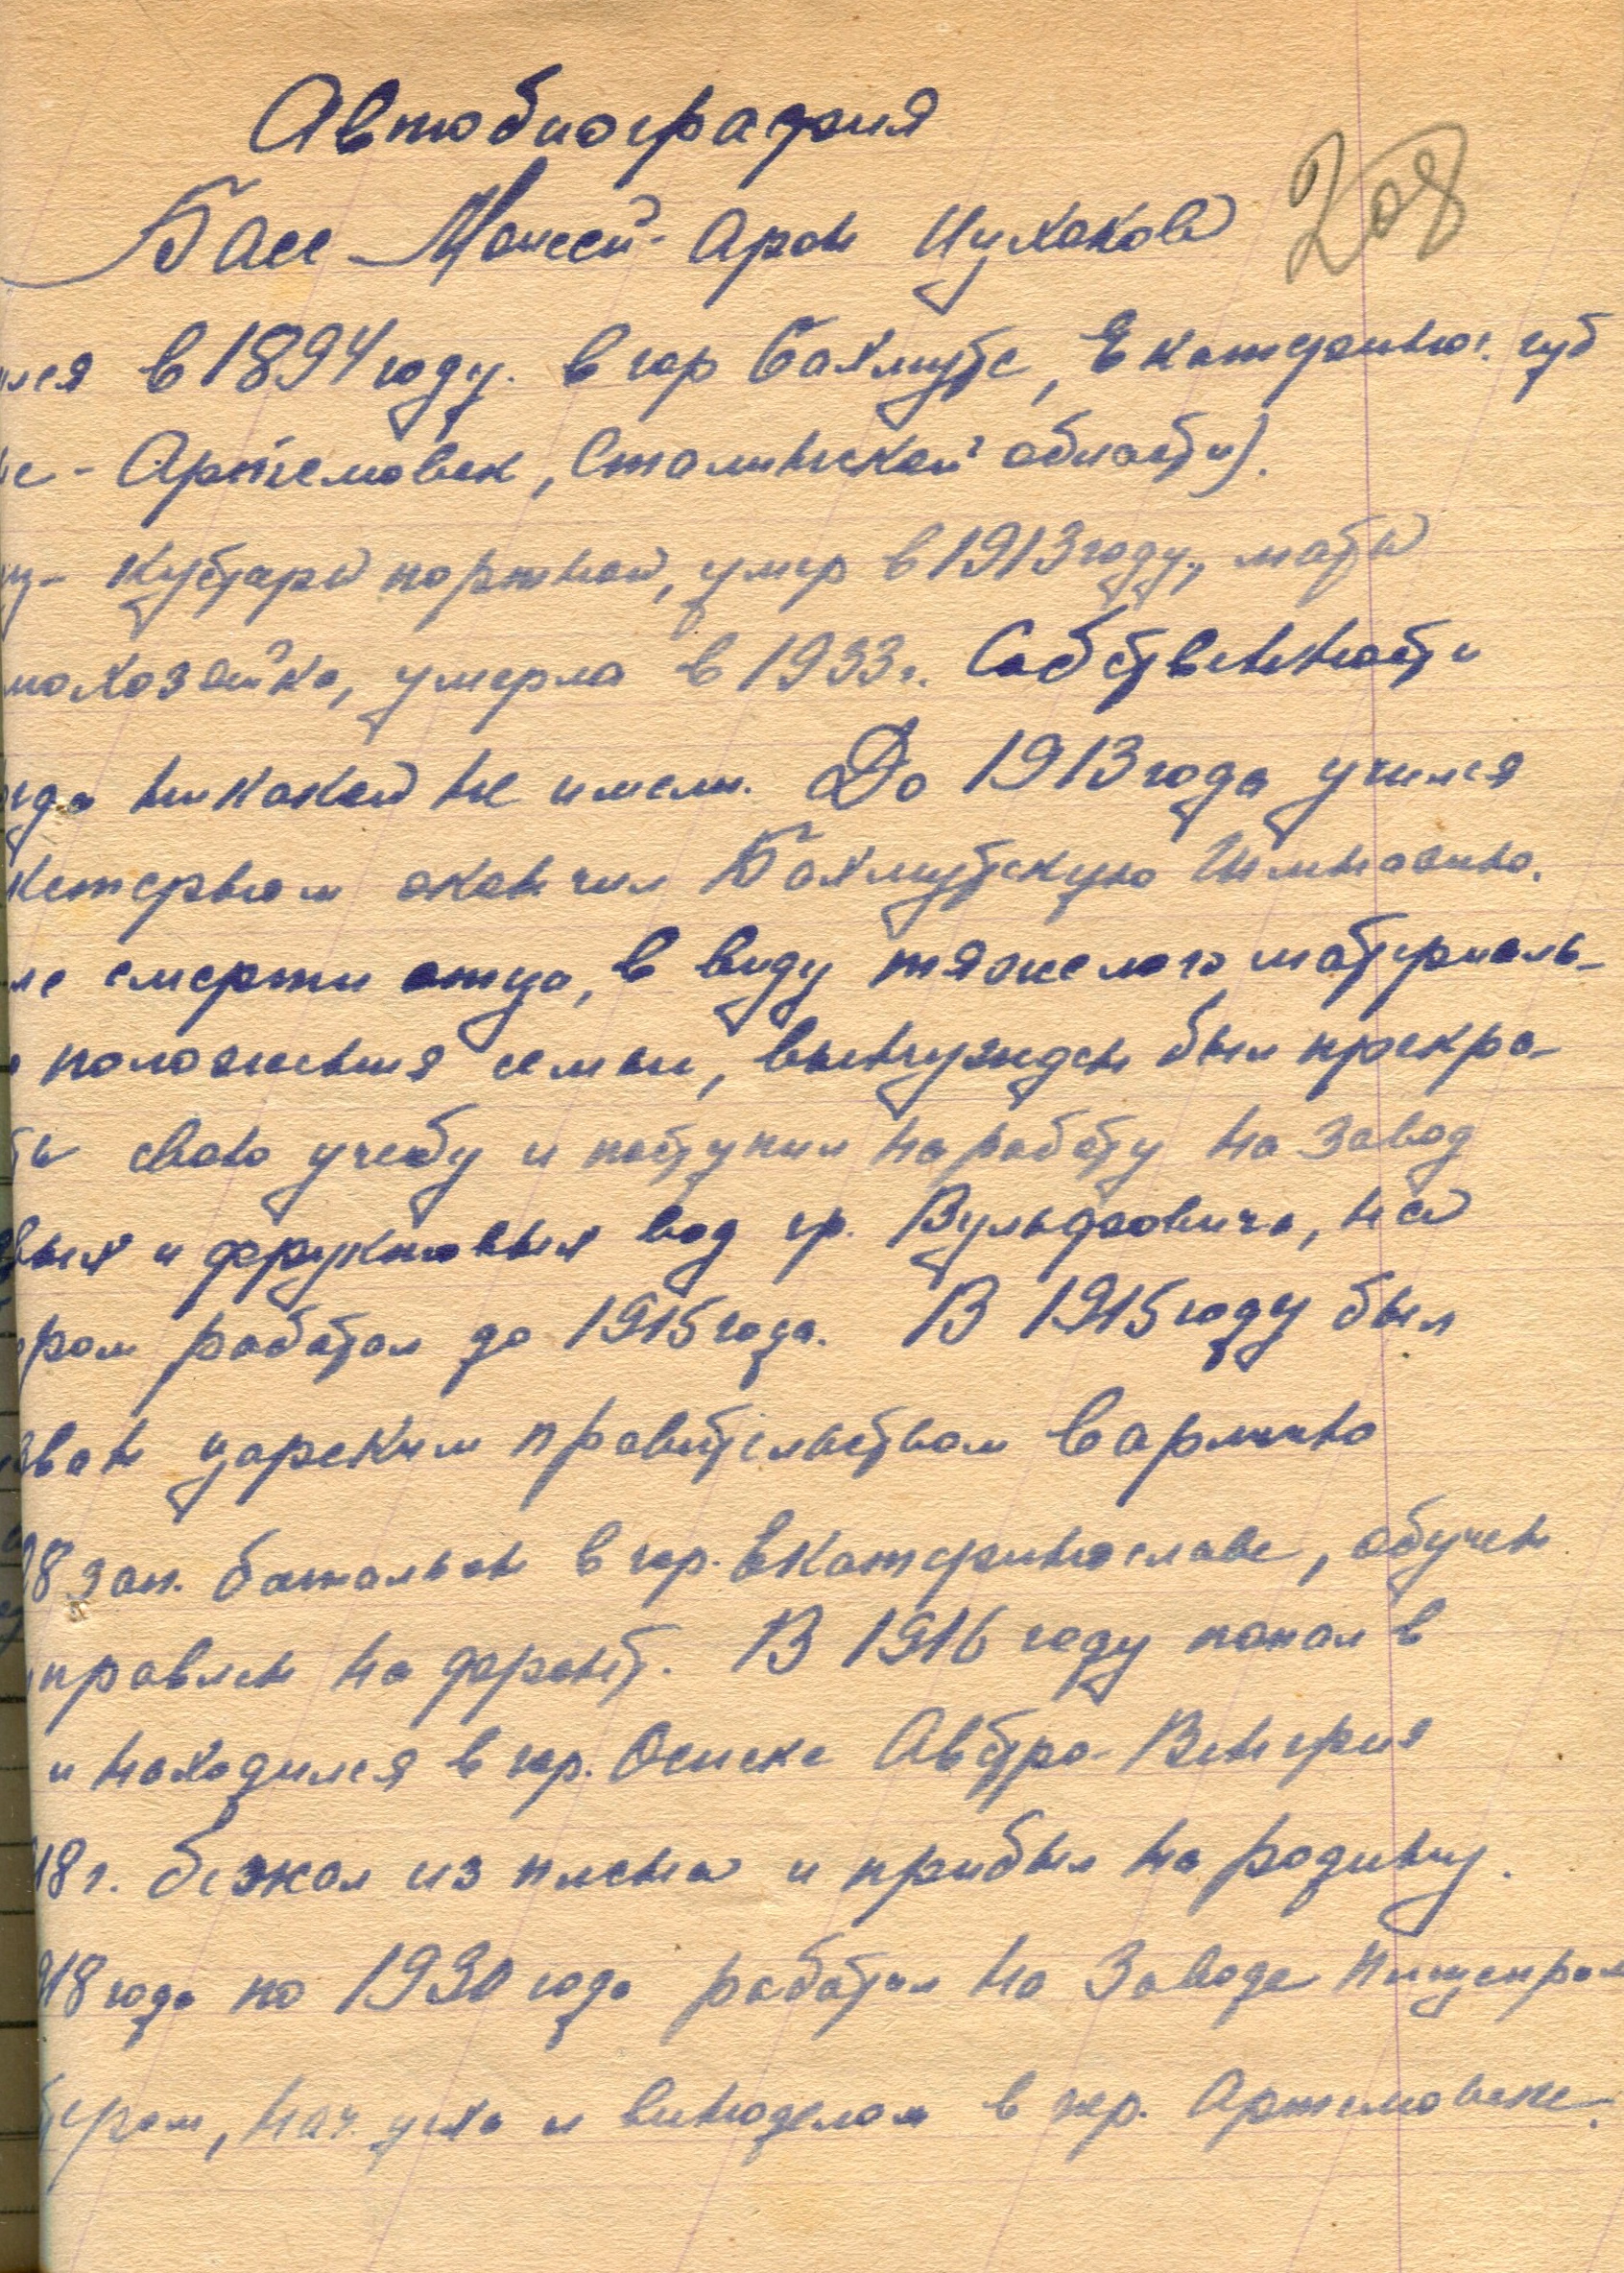 Автобиография
208
Басс Моисей-Арон Цухаков
лся в 1894 году. в гор Бахмуте, Екатеринос. губ
е - Артемовск, Сталинской области).
ц - кустарь портной, умер в 1913 году, мать
мохозяйка, умерла в 1933 г. Собственности
гда никакой не имели. До 1913 года учился
кстерном окончил Бахмутскую Гимназию.
ле смерти отца, в виду тяжелого материаль-
о положения семьи, вынужден был прекра-
ть свою учебу и поступил на работу на завод
вых и фруктовых вод гр. Вульфовича, на
ором работал до 1915 года. В 1915 году был
зван царским правительством в армию
28 зап. батальон в гор. Екатеринославе, обучен
правлен на фронт. В 1916 году попал в
и находился в гор. Осиеке Австро-Венгрия
918 г. бежал из плена и прибыл на родину.
918 года по 1930 года работал на Заводе Пищепром
тером, нач. цеха и виноделом в гор. Артемовске.